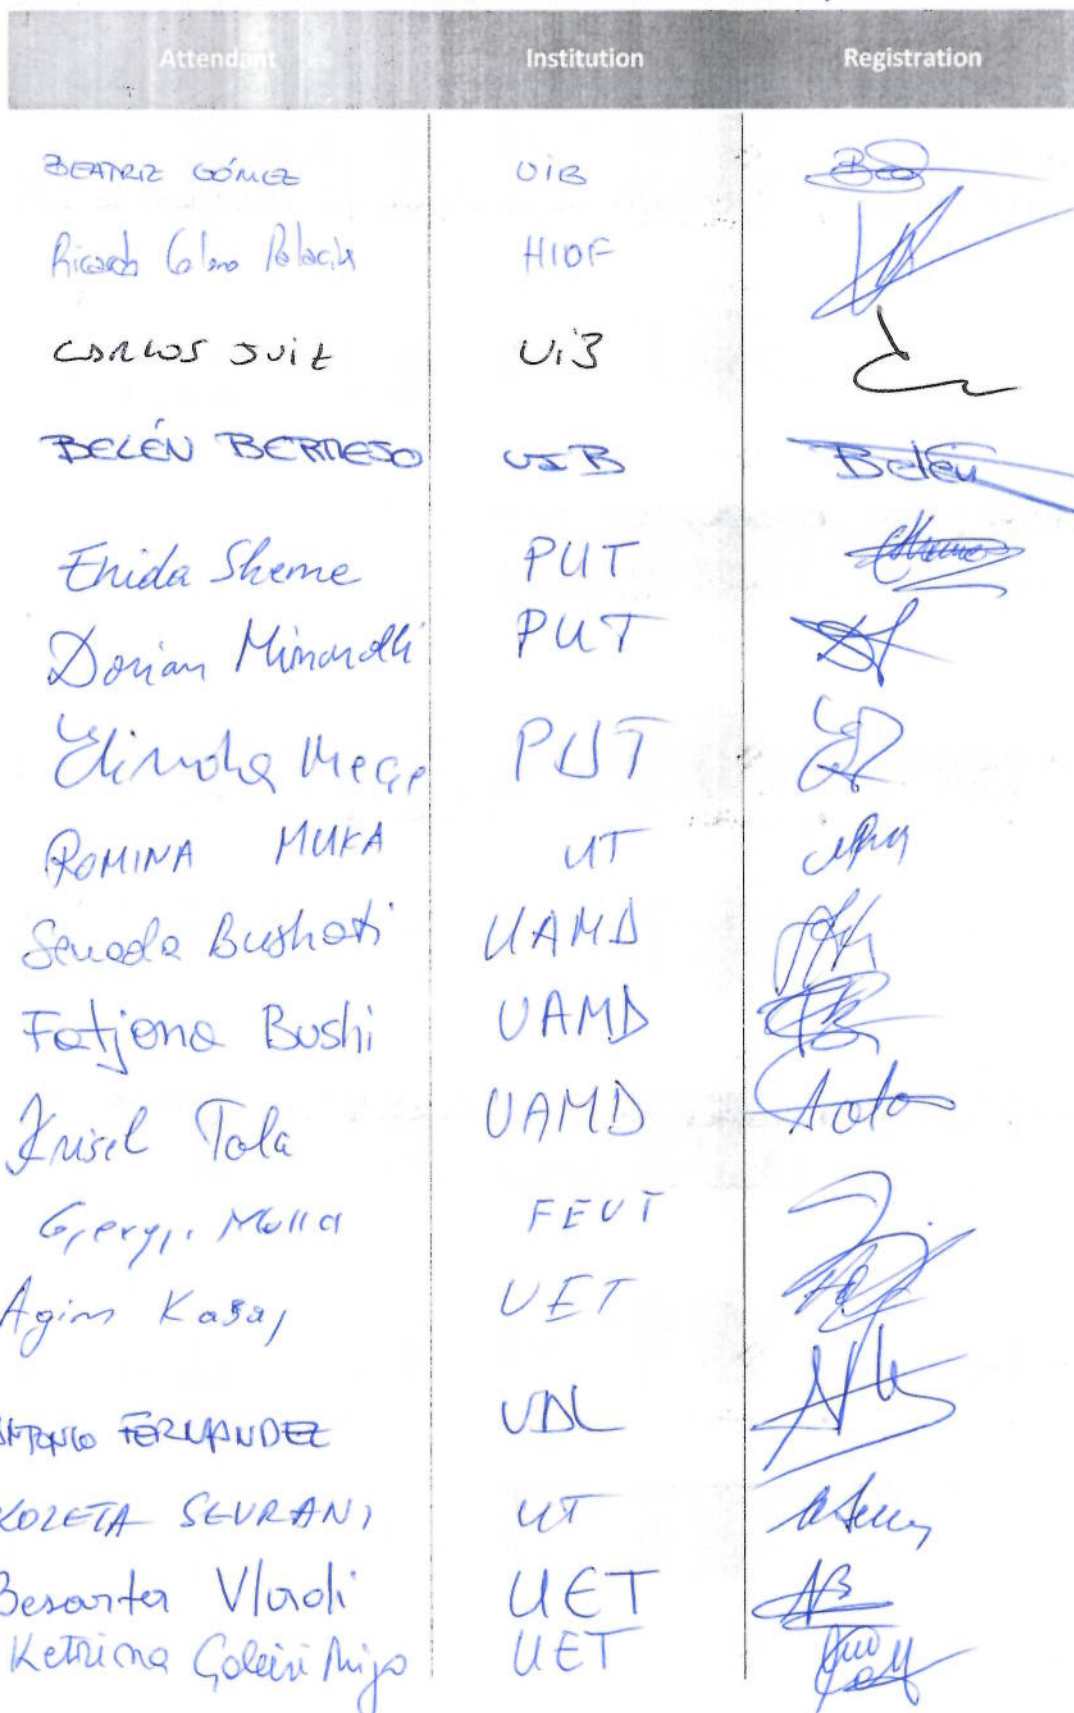 Attendant Institution Registration
BEATRIZ GÓMEZ UiB
Ricardo Colomo Palacios HIOF
CARLOS JUIZ UiB
BELÉN BERMEJO UIB Belén
Enida Sheme PUT
Dorian Minarolli PUT
Elinda Meçe PUT
ROMINA MUKA UT
Senada Bushati UAMD
Fatjona Bushi UAMD
Krisel Tola UAMD
Gjergji Mulla FEUT
Agim Kasaj UET
ANTONIO FERNANDEZ UDL
KOZETA SEVRANI UT
Besarta Vladi UET
Ketrina Mijo UET